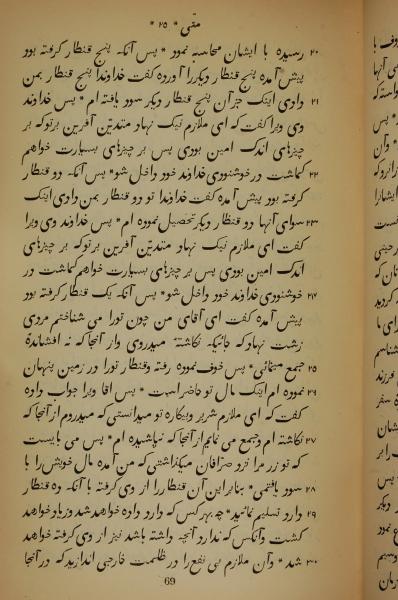 متی * ۲۵ *
۲۰ رسیده با ایشان محاسبه نمود * پس آنکه پنج قنطار گرفته بود
پیش آمده پنج قنطار دیگررا آورده گفت خداوندا پنج قنطار بمن
۲۱ دادی اینک جز آن پنج قنطار دیگر سود یافته ام * پس خداوند
وی ویرا گفت که ای ملازم نیک نهاد متدین آفرین بر تو که بر
چیزهای اندک امین بودی پس بر چیزهای بسیارت خواهم
۲۲ گماشت در خوشنودی خداوند خود داخل شو * پس آنکه دو قنطار
گرفته بود پیش آمده گفت خداوندا تو دو قنطار بمن دادی اینک
۲۳ سوای آنها دو قنطار دیگر تحصیل نموده ام * خداوند وی ویرا
گفت ای ملازم نیک نهاد متدین آفرین بر تو که بر چیزهای
اندک امین بودی پس بر چیزهای بسیارت خواهم گماشت در
۲۴ خوشنودی خداوند خود داخل شو * پس آنکه یک قنطار گرفته بود
پیش آمده گفت ای آقای من چون تورا می شناختم مردی
زشت نهاد که جائیکه نکاشتهٔ میدروی واز آنجا که نه افشاندهٔ
۲۵ جمع مینمائی * پس خوف نموده رفته وقنطار تورا در زمین پنهان
۲۶ نموده ام اینک مال تو حاضر است * پس آقا ویرا جواب داده
گفت که ای ملازم شریر وبیکاره تو میدانستی که میدروم از آنجا که
۲۷ نکاشته ام وجمع می نمایم از آنجا که نپاشیده ام * پس می بایست
که تو زر مرا نزد صرافان میگذاشتی که من آمده مال خویش را با
۲۸ سود یافتمی * بنابراین آن قنطاررا از وی گرفته با آنکه ده قنطار
۲۹ دارد تسلیم نمائید * چه بهر کس که دارد داده خواهد شد وزیاد خواهد
گشت وآنکس که ندارد آنچه داشته باشد نیز از وی گرفته خواهد
۳۰ شد * وآن ملازم بی نفع را در ظلمت خارجی اندازید که در آنجا
69